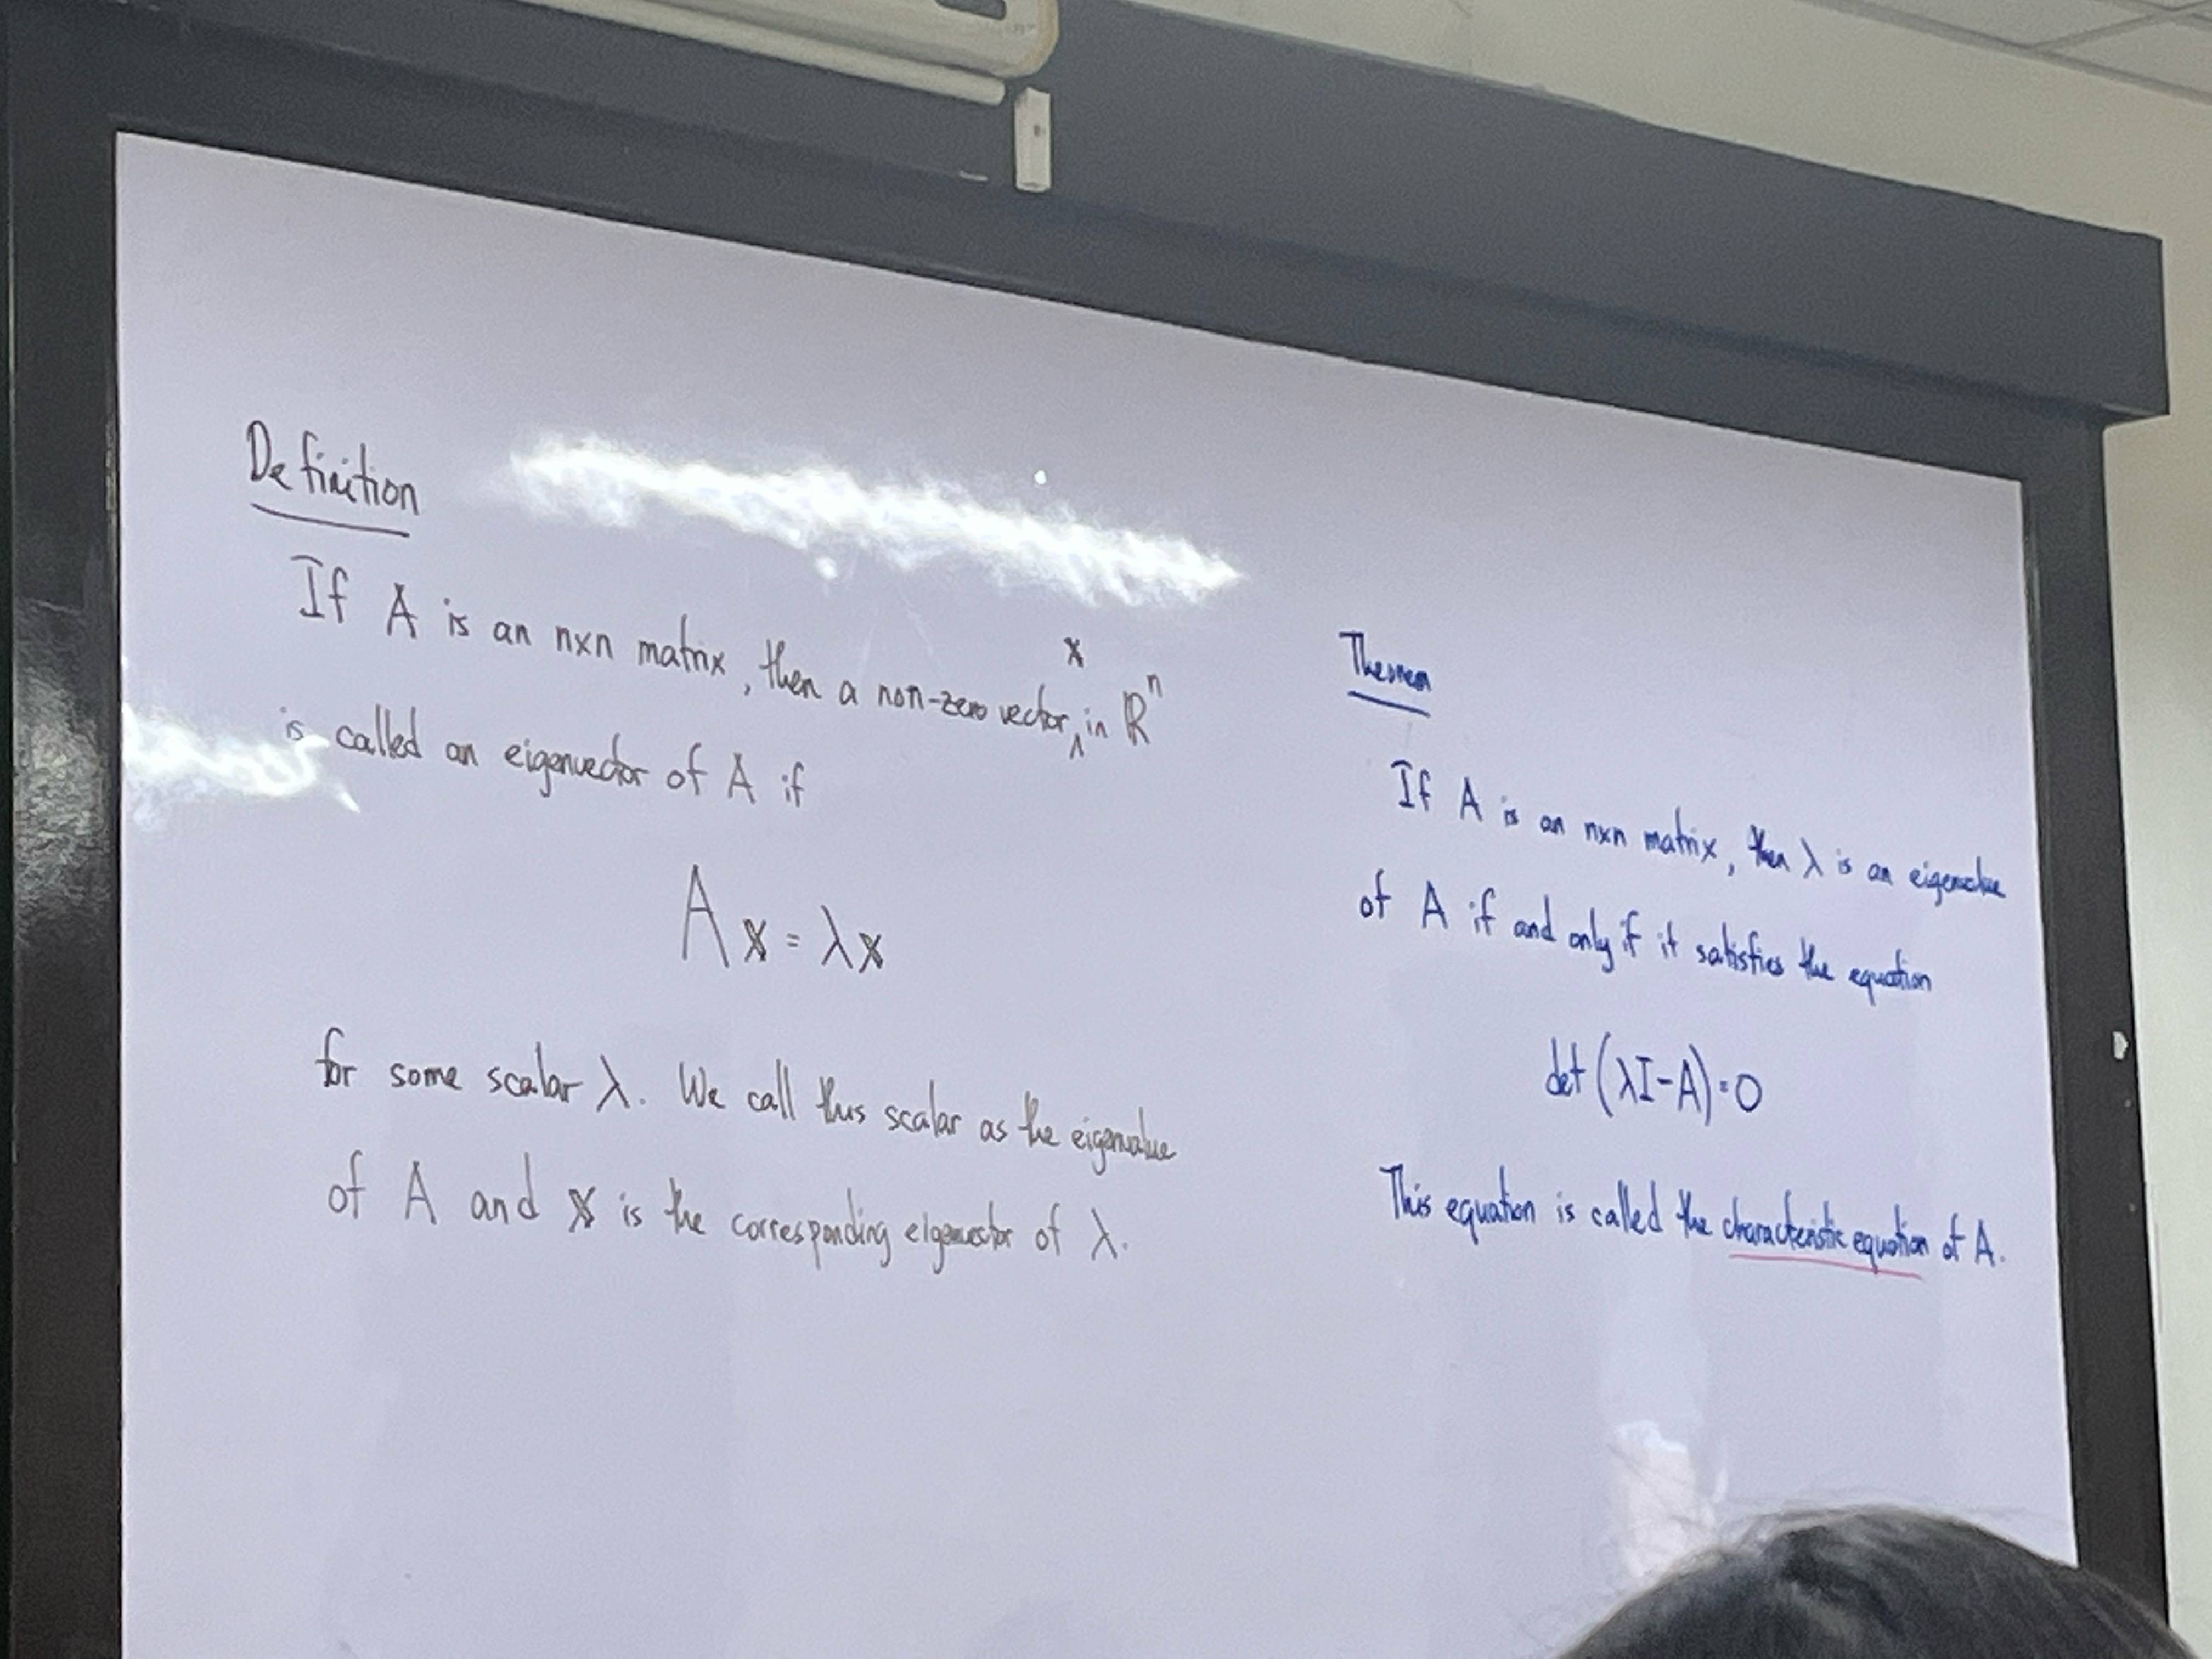 Definition
If A is an nxn matrix, then a non-zero vector x in ℝⁿ
is called an eigenvector of A if
Ax = λx
for some scalar λ. We call this scalar as the eigenvalue
of A and x is the corresponding eigenvector of λ.
Theorem
If A is an nxn matrix, then λ is an eigenvalue
of A if and only if it satisfies the equation
det(λI-A)=0
This equation is called the characteristic equation of A.